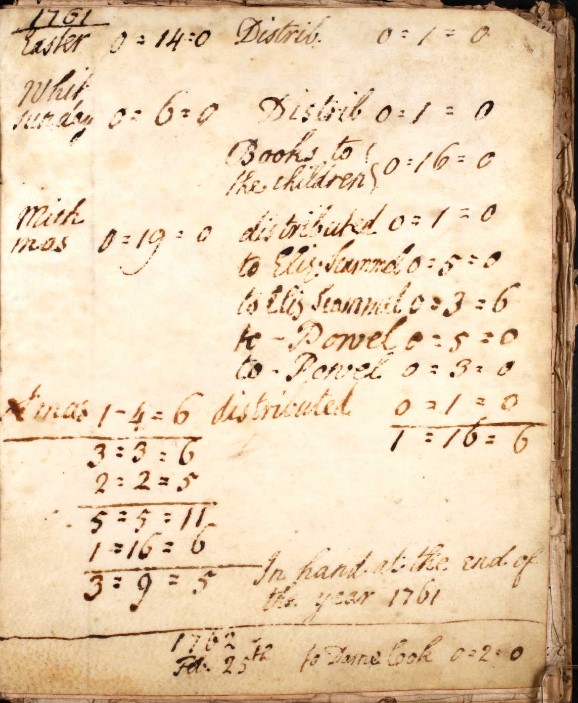 1761
Easter 0=14=0 Distrib. 0=1=0
Whit
sunday 0=6=0 Distrib 0=1=0
Books to
the children 0=16=0
Mich
mas 0=19=0 distributed 0=1=0
to Eliz: Scammel 0=5=0
to Eliz Scammel 0=3=6
to - Powel 0=5=0
to - Powel 0=3=0
Xmas 1-4=6 distributed 0=1=0
1=16=6
3=3=6
2=2=5
5=5=11
1=16=6
3=9=5 In hand at the end of
the year 1761
1762
Feb. 25th to Dame Cook 0=2=0